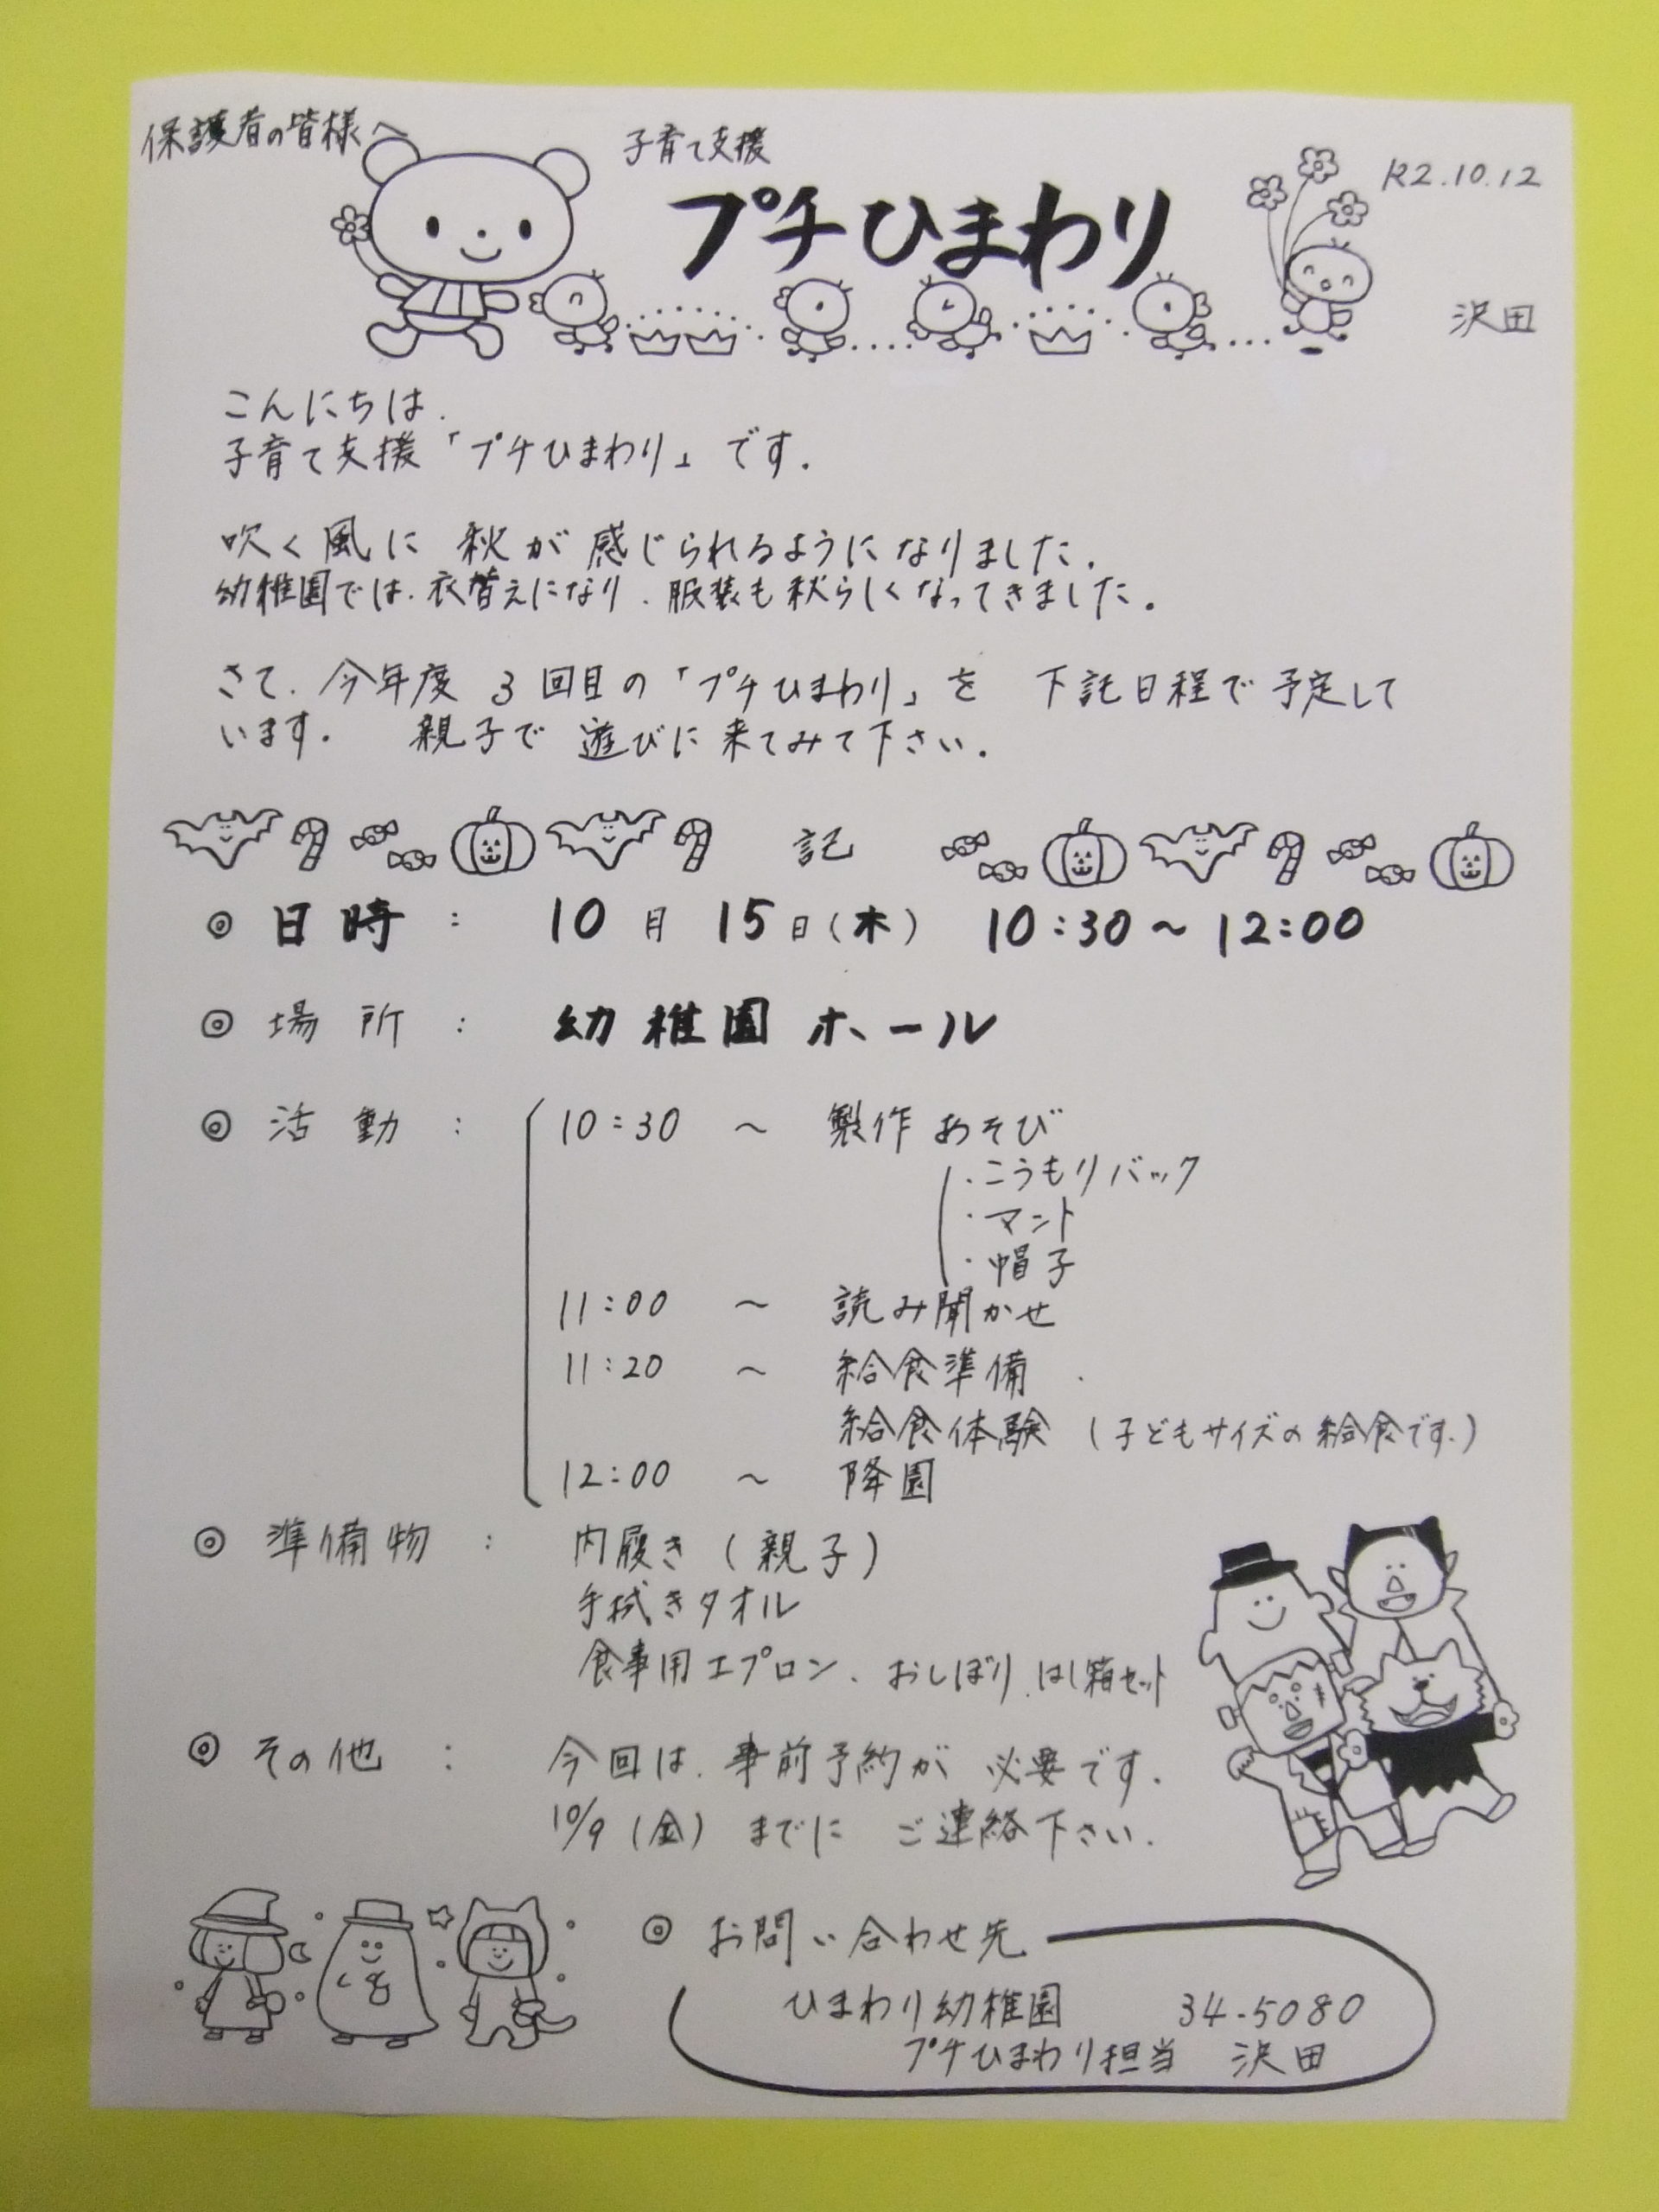 保護者の皆様へ
子育て支援
R2.10.12
プチひまわり
沢田
こんにちは.
子育て支援「プチひまわり」です.
吹く風に 秋が 感じられるようになりました.
幼稚園では、衣替えになり、服装も秋らしくなってきました。
さて、今年度 3回目の「プチひまわり」を 下記日程で予定して
います. 親子で 遊びに来てみて下さい.
記
◎ 日時 : 10月 15日(木) 10:30〜12:00
◎ 場所 : 幼稚園ホール
◎ 活動 : 10:30 〜 製作あそび
・こうもりバック
・マント
・帽子
11:00 〜 読み聞かせ
11:20 〜 給食準備
給食体験 (子どもサイズの給食です.)
12:00 〜 降園
◎ 準備物 : 内履き(親子)
手拭きタオル
食事用エプロン、おしぼり、はし箱セット
◎ その他 : 今回は、事前予約が 必要です.
10/9(金)までに ご連絡下さい.
◎ お問い合わせ先
ひまわり幼稚園 34-5080
プチひまわり担当 沢田